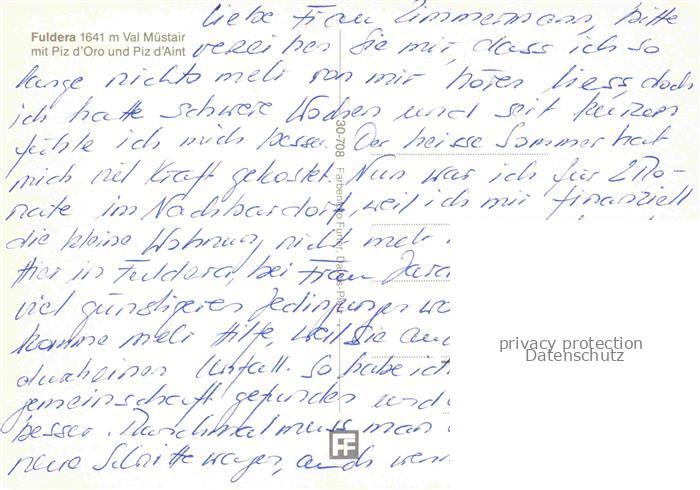 Fuldera 1641 m Val Müstair
mit Piz d'Oro und Piz d'Aint
Liebe Frau Zimmermann, bitte
verzeihen Sie mir, dass ich so
lange nichts mehr von mir hören liess, doch
ich hatte schwere Wochen und seit kurzem
fühle ich mich besser. Der heisse Sommer hat
mich viel Kraft gekostet. Nun war ich für 2 Mo-
nate im Nachbardorf, weil ich mir finanziell
die kleine Wohnung nicht mehr
Hier in Fuldera, bei Frau
viel günstigeren Bedingungen
komme mehr Hilfe, weil sie
durch einen Unfall. So habe ich
gemeinschaft gefunden und
besser. Manchmal muss man
neue Schritte wagen, auch wenn
30-708 Farbenfoto Furter, Davos-Platz
FF
privacy protection
Datenschutz